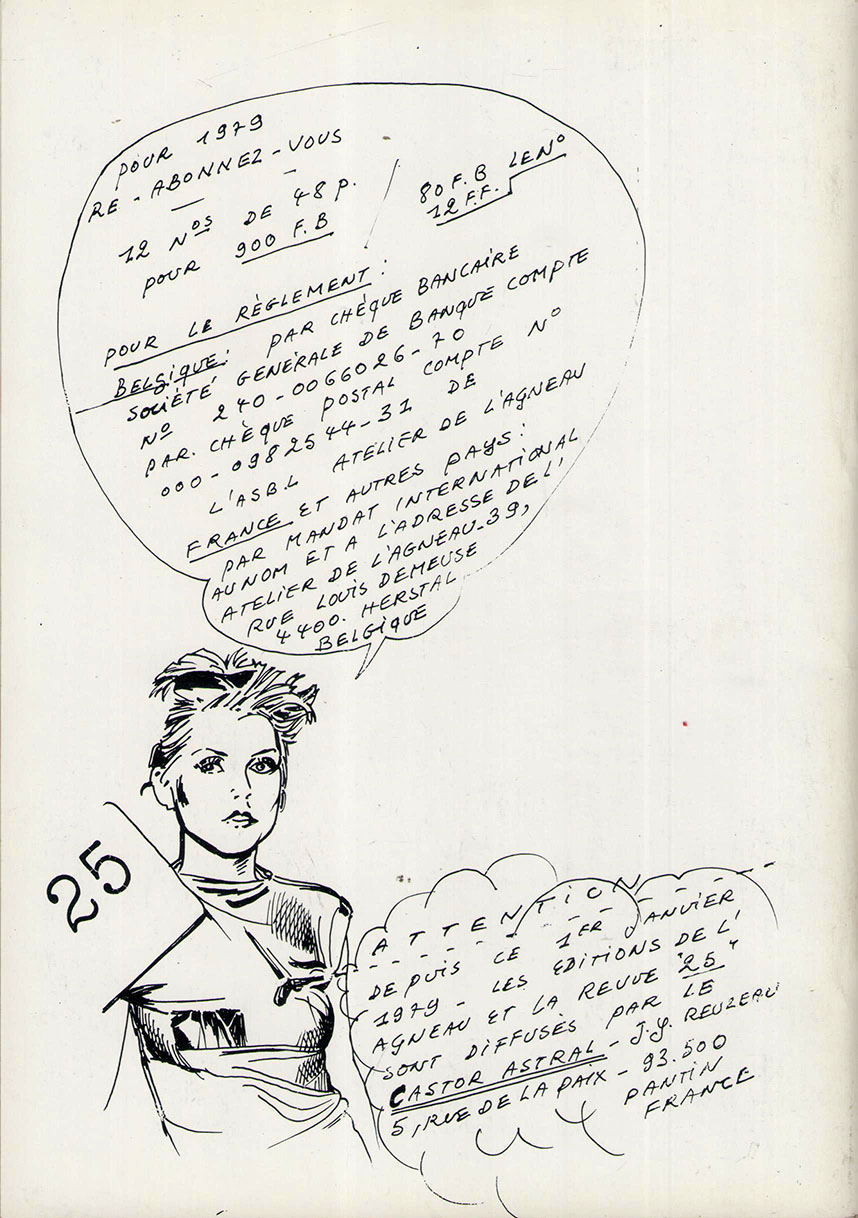 POUR 1979
RE-ABONNEZ-VOUS
12 Nos DE 48 P.
POUR 900 F.B
/ 80 F.B LE No
12 F.F.
POUR LE RÈGLEMENT :
BELGIQUE: PAR CHÈQUE BANCAIRE
SOCIÉTÉ GENERALE DE BANQUE COMPTE
No 240-0066026-70
PAR CHÈQUE POSTAL COMPTE No
000-0982544-31 DE
L'ASB.L ATELIER DE L'AGNEAU
FRANCE ET AUTRES PAYS :
PAR MANDAT INTERNATIONAL
AU NOM ET A L'ADRESSE DE L'
ATELIER DE L'AGNEAU_39,
RUE LOUIS DEMEUSE
4400. HERSTAL
BELGIQUE
25
ATTENTION
DEPUIS LE 1ER JANVIER
1979 - LES EDITIONS DE L'
AGNEAU ET LA REVUE "25"
SONT DIFFUSÈS PAR LE
CASTOR ASTRAL - J.Y. REUZEAU
5, RUE DE LA PAIX - 93.500
PANTIN
FRANCE